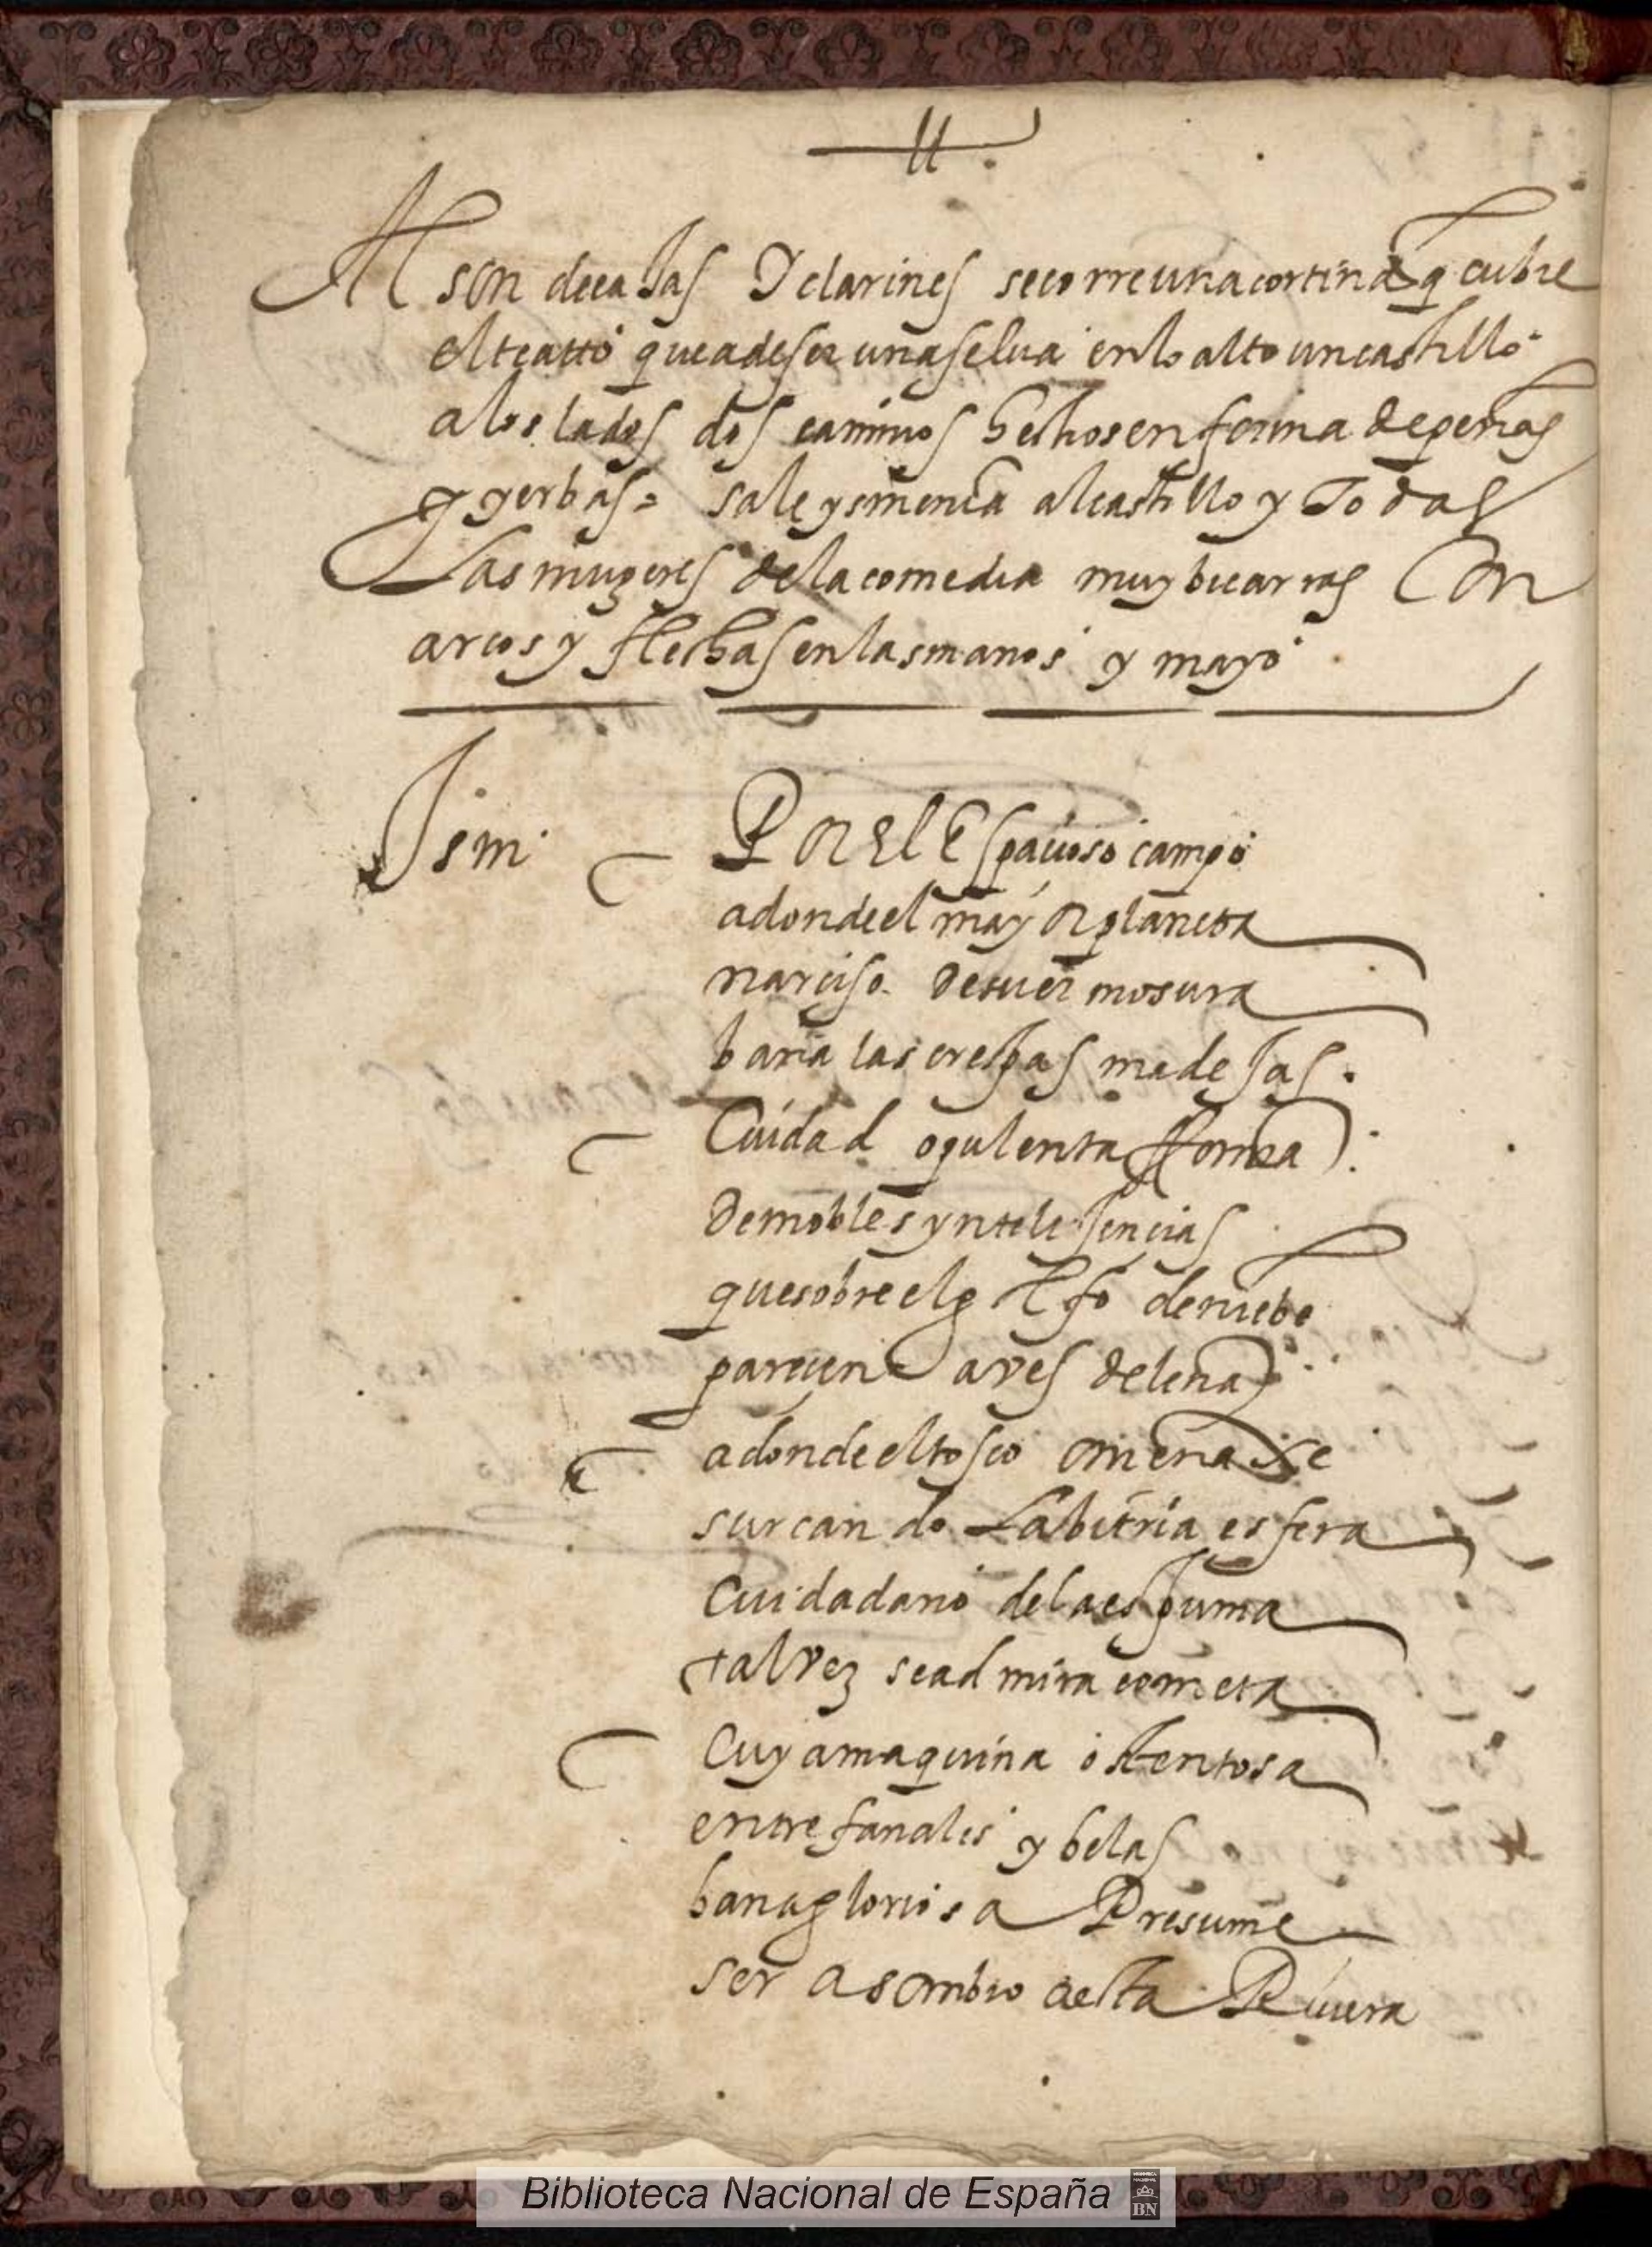 Al son de cajas Y clarines se corre una cortina q cubre
el teatro que a de ser una selua en lo alto un castillo
a los lados dos caminos hechos en forma de peñas
y yerbas = sale ysmenia al castillo y Todas
Las mugeres de la comedia muy bicarras Con
arcos y flechas en las manos y mayo
Ism. POR El Espacioso campo
adonde el mayor planeta
narciso de su ermosura
baña las crespas madejas.
Ciudad opulenta forma
de mobles yntelijencias
que sobre el golfo de niebe
parecen aves de leña
adonde el tosco omenaxe
surcando La bitria esfera
Ciudadano de la espuma
tal vez se admira cometa
Cuya maquina ostentosa
entre fanales y belas
banagloriosa Presume
ser asombro desta Riuera
Biblioteca Nacional de España
BN